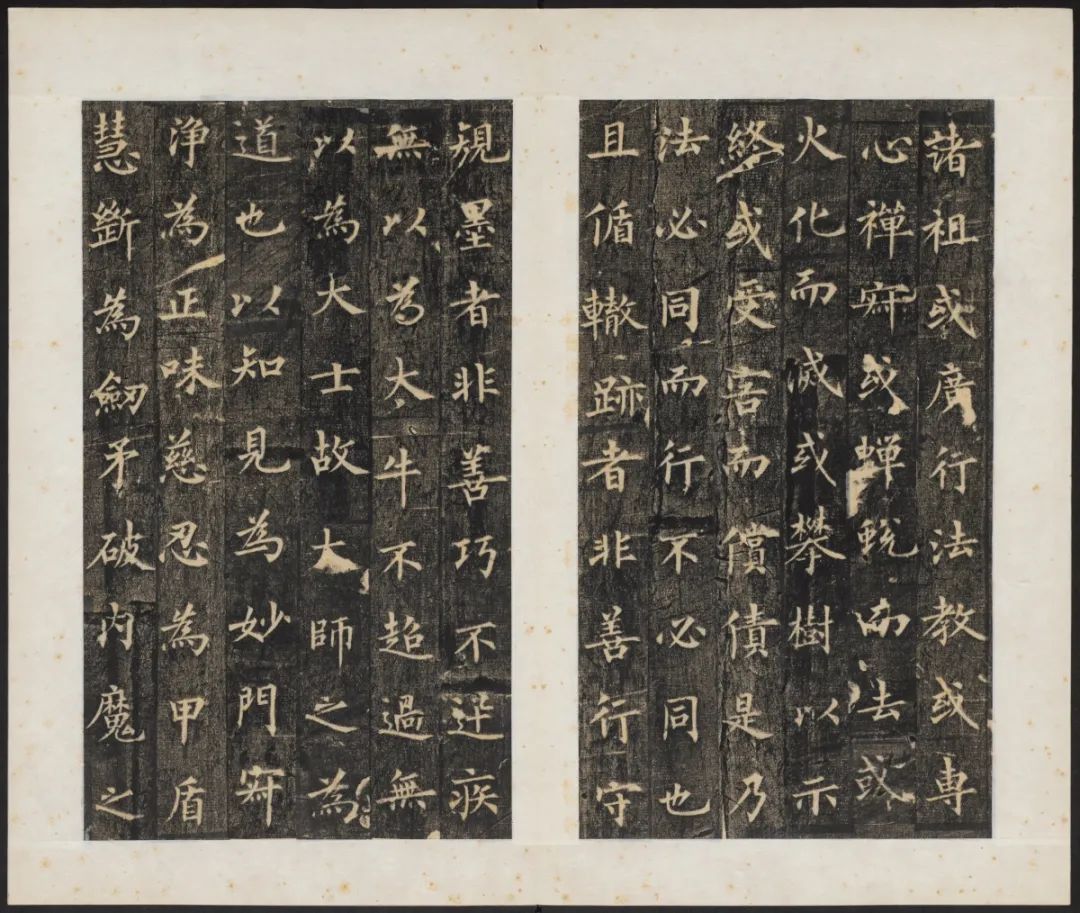 諸祖或廣行法教或專
心禪寂或蟬蛻而去或
火化而滅或攀樹以示
終或受害而償債是乃
法必同而行不必同也
且循轍跡者非善行守
規墨者非善巧不迅疾
無以為大牛不超過無
以為大士故大師之為
道也以知見為妙門寂
淨為正味慈忍為甲盾
慧斷為劒矛破內魔之